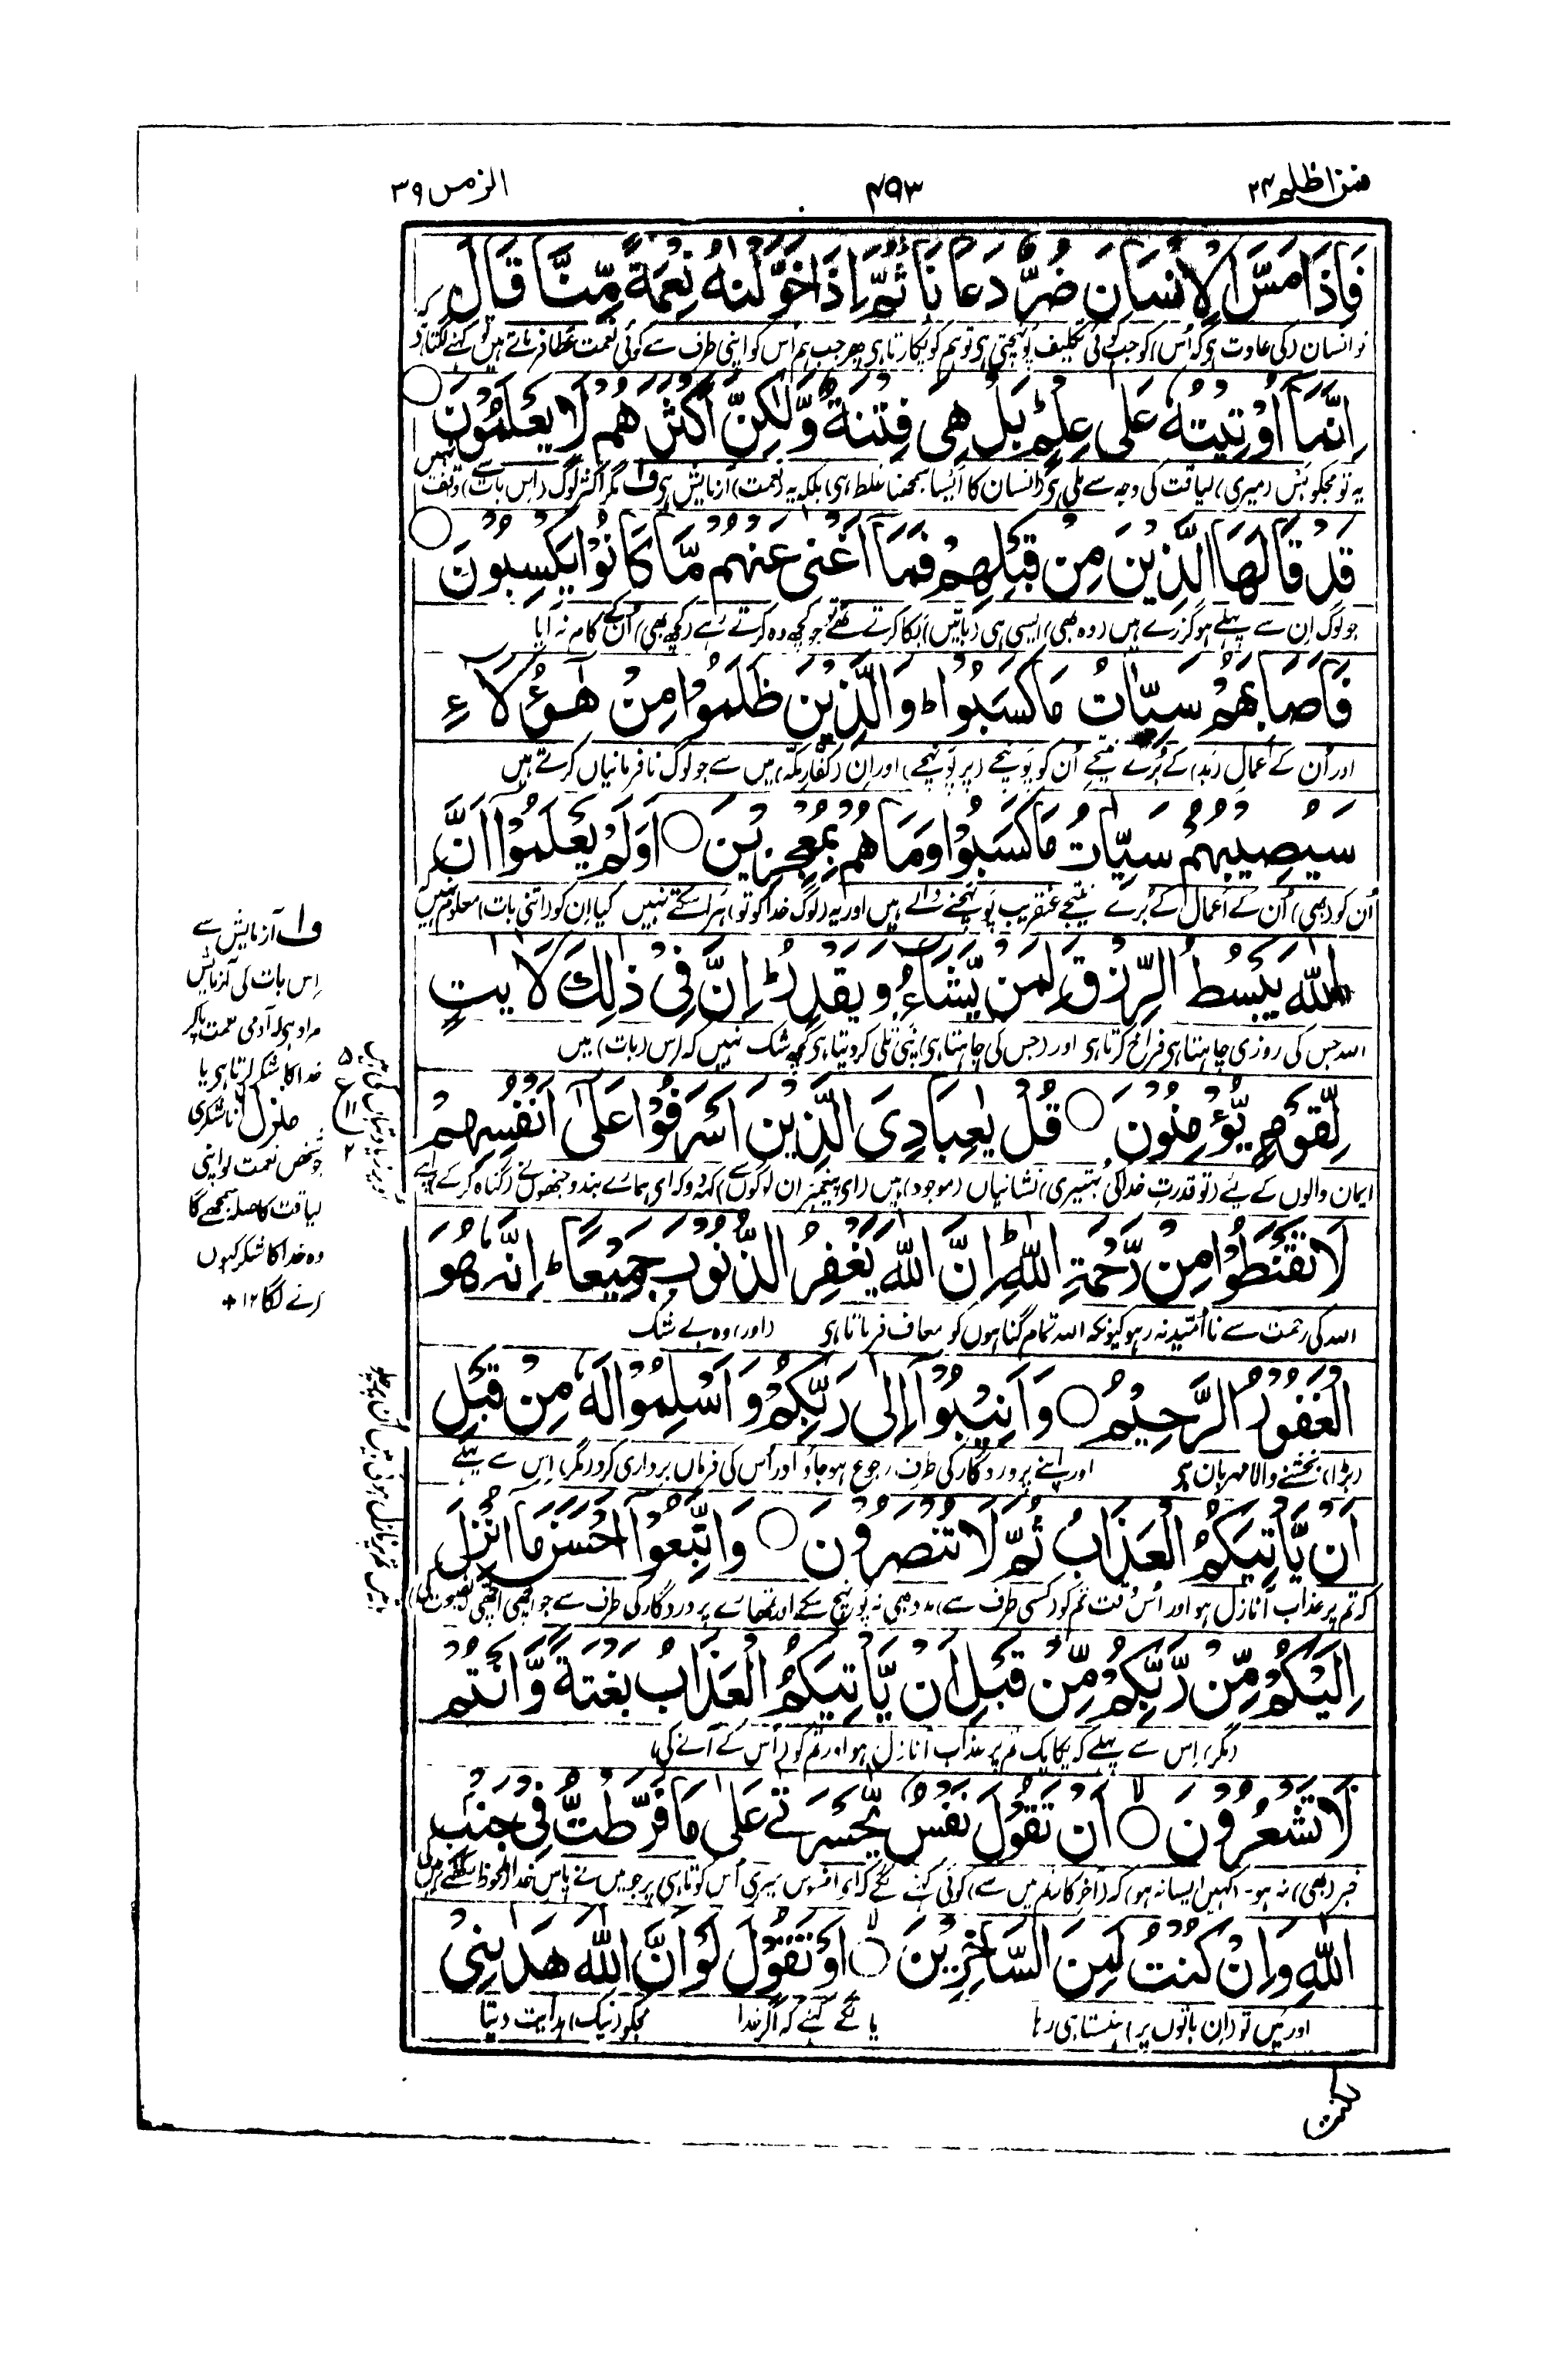 فمن اظلم ۲۴
۷۹۳
الزمر ۳۹
فَاِذَا مَسَّ الْاِنْسَانَ ضُرٌّ دَعَانَا ثُمَّ اِذَا خَوَّلْنٰهُ نِعْمَةً مِّنَّا قَالَ
تو انسان (کی عادت ہی کہ اُس) کو جب کوئی تکلیف پہنچتی ہی تو ہم کو پکارتا ہی پھر جب ہم اُس کو اپنی طرف سے کوئی نعمت عطا فرماتے ہیں تو کہنے لگتا ہی کہ
اِنَّمَا اُوْتِيْتُهٗ عَلٰى عِلْمٍ ؕ بَلْ هِيَ فِتْنَةٌ وَّلٰكِنَّ اَكْثَرَهُمْ لَا يَعْلَمُوْنَ ○
یہ تو مجکو بس (میری) لیاقت کی وجہ سے ملی ہی (انسان کا ایسا سمجھنا غلط ہی) بلکہ یہ (نعمت) آزمایش ہی ف۱ مگر اکثر لوگ (اس بات سے) واقف نہیں
قَدْ قَالَهَا الَّذِيْنَ مِنْ قَبْلِهِمْ فَمَا اَغْنٰى عَنْهُمْ مَّا كَانُوْا يَكْسِبُوْنَ ○
جو لوگ ان سے پہلے ہو گزرے ہیں (وہ بھی) ایسی ہی (باتیں) بکا کرتے تھے تو جو کچھ وہ کرتے رہے (کچھ بھی) اُن کے کام نہ آیا
فَاَصَابَهُمْ سَيِّاٰتُ مَا كَسَبُوْا ؕ وَالَّذِيْنَ ظَلَمُوْا مِنْ هٰٓؤُلَآءِ
اور اُن کے اعمال (بد) کے بُرے نتیجے اُن کو پہنچے (پر پہنچے) اور ان (کفار مکہ) میں سے جو لوگ نافرمانیاں کرتے ہیں
سَيُصِيْبُهُمْ سَيِّاٰتُ مَا كَسَبُوْا وَمَا هُمْ بِمُعْجِزِيْنَ ○ اَوَلَمْ يَعْلَمُوْا اَنَّ
اُن کو (بھی) اُن کے اعمال کے بُرے نتیجے عنقریب پہنچنے والے ہیں اور یہ (لوگ خدا کو تو) ہرا سکتے نہیں کیا ان کو (اتنی بات) معلوم نہیں کہ
اللّٰهَ يَبْسُطُ الرِّزْقَ لِمَنْ يَّشَآءُ وَيَقْدِرُ ؕ اِنَّ فِيْ ذٰلِكَ لَاٰيٰتٍ
اللہ جس کی روزی چاہتا ہی فراخ کرتا ہی اور (جس کی چاہتا ہی) نپی تلی کر دیتا ہی کچھ شک نہیں کہ اس (بات) میں
لِّقَوْمٍ يُّؤْمِنُوْنَ ○ قُلْ يٰعِبَادِيَ الَّذِيْنَ اَسْرَفُوْا عَلٰٓى اَنْفُسِهِمْ
ایمان والوں کے لیے (تو قدرتِ خدا کی بہتیری) نشانیاں (موجود) ہیں (ای پیغمبر ان لوگوں سے) کہہ دو کہ ای ہمارے بندو جنھوں نے (گناہ کر کے) اپنے
لَا تَقْنَطُوْا مِنْ رَّحْمَةِ اللّٰهِ ؕ اِنَّ اللّٰهَ يَغْفِرُ الذُّنُوْبَ جَمِيْعًا ؕ اِنَّهٗ هُوَ
اللہ کی رحمت سے ناامید نہ رہو کیونکہ اللہ تمام گناہوں کو معاف فرماتا ہی (اور) وہ بے شک
الْغَفُوْرُ الرَّحِيْمُ ○ وَاَنِيْبُوْا اِلٰى رَبِّكُمْ وَاَسْلِمُوْا لَهٗ مِنْ قَبْلِ
(بڑا) بخشنے والا مہربان ہی اور اپنے پروردگار کی طرف رجوع ہو جاؤ اور اُس کی فرماں برداری کرو (مگر) اس سے پہلے
اَنْ يَّاْتِيَكُمُ الْعَذَابُ ثُمَّ لَا تُنْصَرُوْنَ ○ وَاتَّبِعُوْٓا اَحْسَنَ مَا اُنْزِلَ
کہ تم پر عذاب آ نازل ہو اور اُس وقت تم کو (کسی طرف سے) مدد بھی نہ پہنچ سکے اور تمھارے پروردگار کی طرف سے جو اچھی اچھی
اِلَيْكُمْ مِّنْ رَّبِّكُمْ مِّنْ قَبْلِ اَنْ يَّاْتِيَكُمُ الْعَذَابُ بَغْتَةً وَّاَنْتُمْ
(مگر) اس سے پہلے کہ یکایک تم پر عذاب آ نازل ہو اور تم کو (اُس کے آنے کی)
لَا تَشْعُرُوْنَ ○ اَنْ تَقُوْلَ نَفْسٌ يّٰحَسْرَتٰى عَلٰى مَا فَرَّطْتُّ فِيْ جَنْۢبِ
خبر (بھی) نہ ہو۔ (کہیں ایسا نہ ہو) کہ (آخر کار تم میں سے) کوئی کہنے لگے کہ ای افسوس میری اُس کوتاہی پر جو میں نے پاس خدا ملحوظ رکھنے میں کی
اللّٰهِ وَاِنْ كُنْتُ لَمِنَ السّٰخِرِيْنَ ○ اَوْ تَقُوْلَ لَوْ اَنَّ اللّٰهَ هَدٰىنِيْ
اور میں تو (ان باتوں پر) ہنستا ہی رہا یا لگے کہنے کہ اگر خدا مجکو (نیک) ہدایت دیتا
ف۱ آزمایش سے
اِس بات کی آزمایش
مراد ہی کہ آدمی نعمت پا کر
خدا کا شکر کرتا ہی یا
ناشکری
جو شخص نعمت کو اپنی
لیاقت کا صلہ سمجھے گا
وہ خدا کا شکر کیوں
کرنے لگا ۱۲+
منزل
ع ۵
۱۱
۲
لكنت